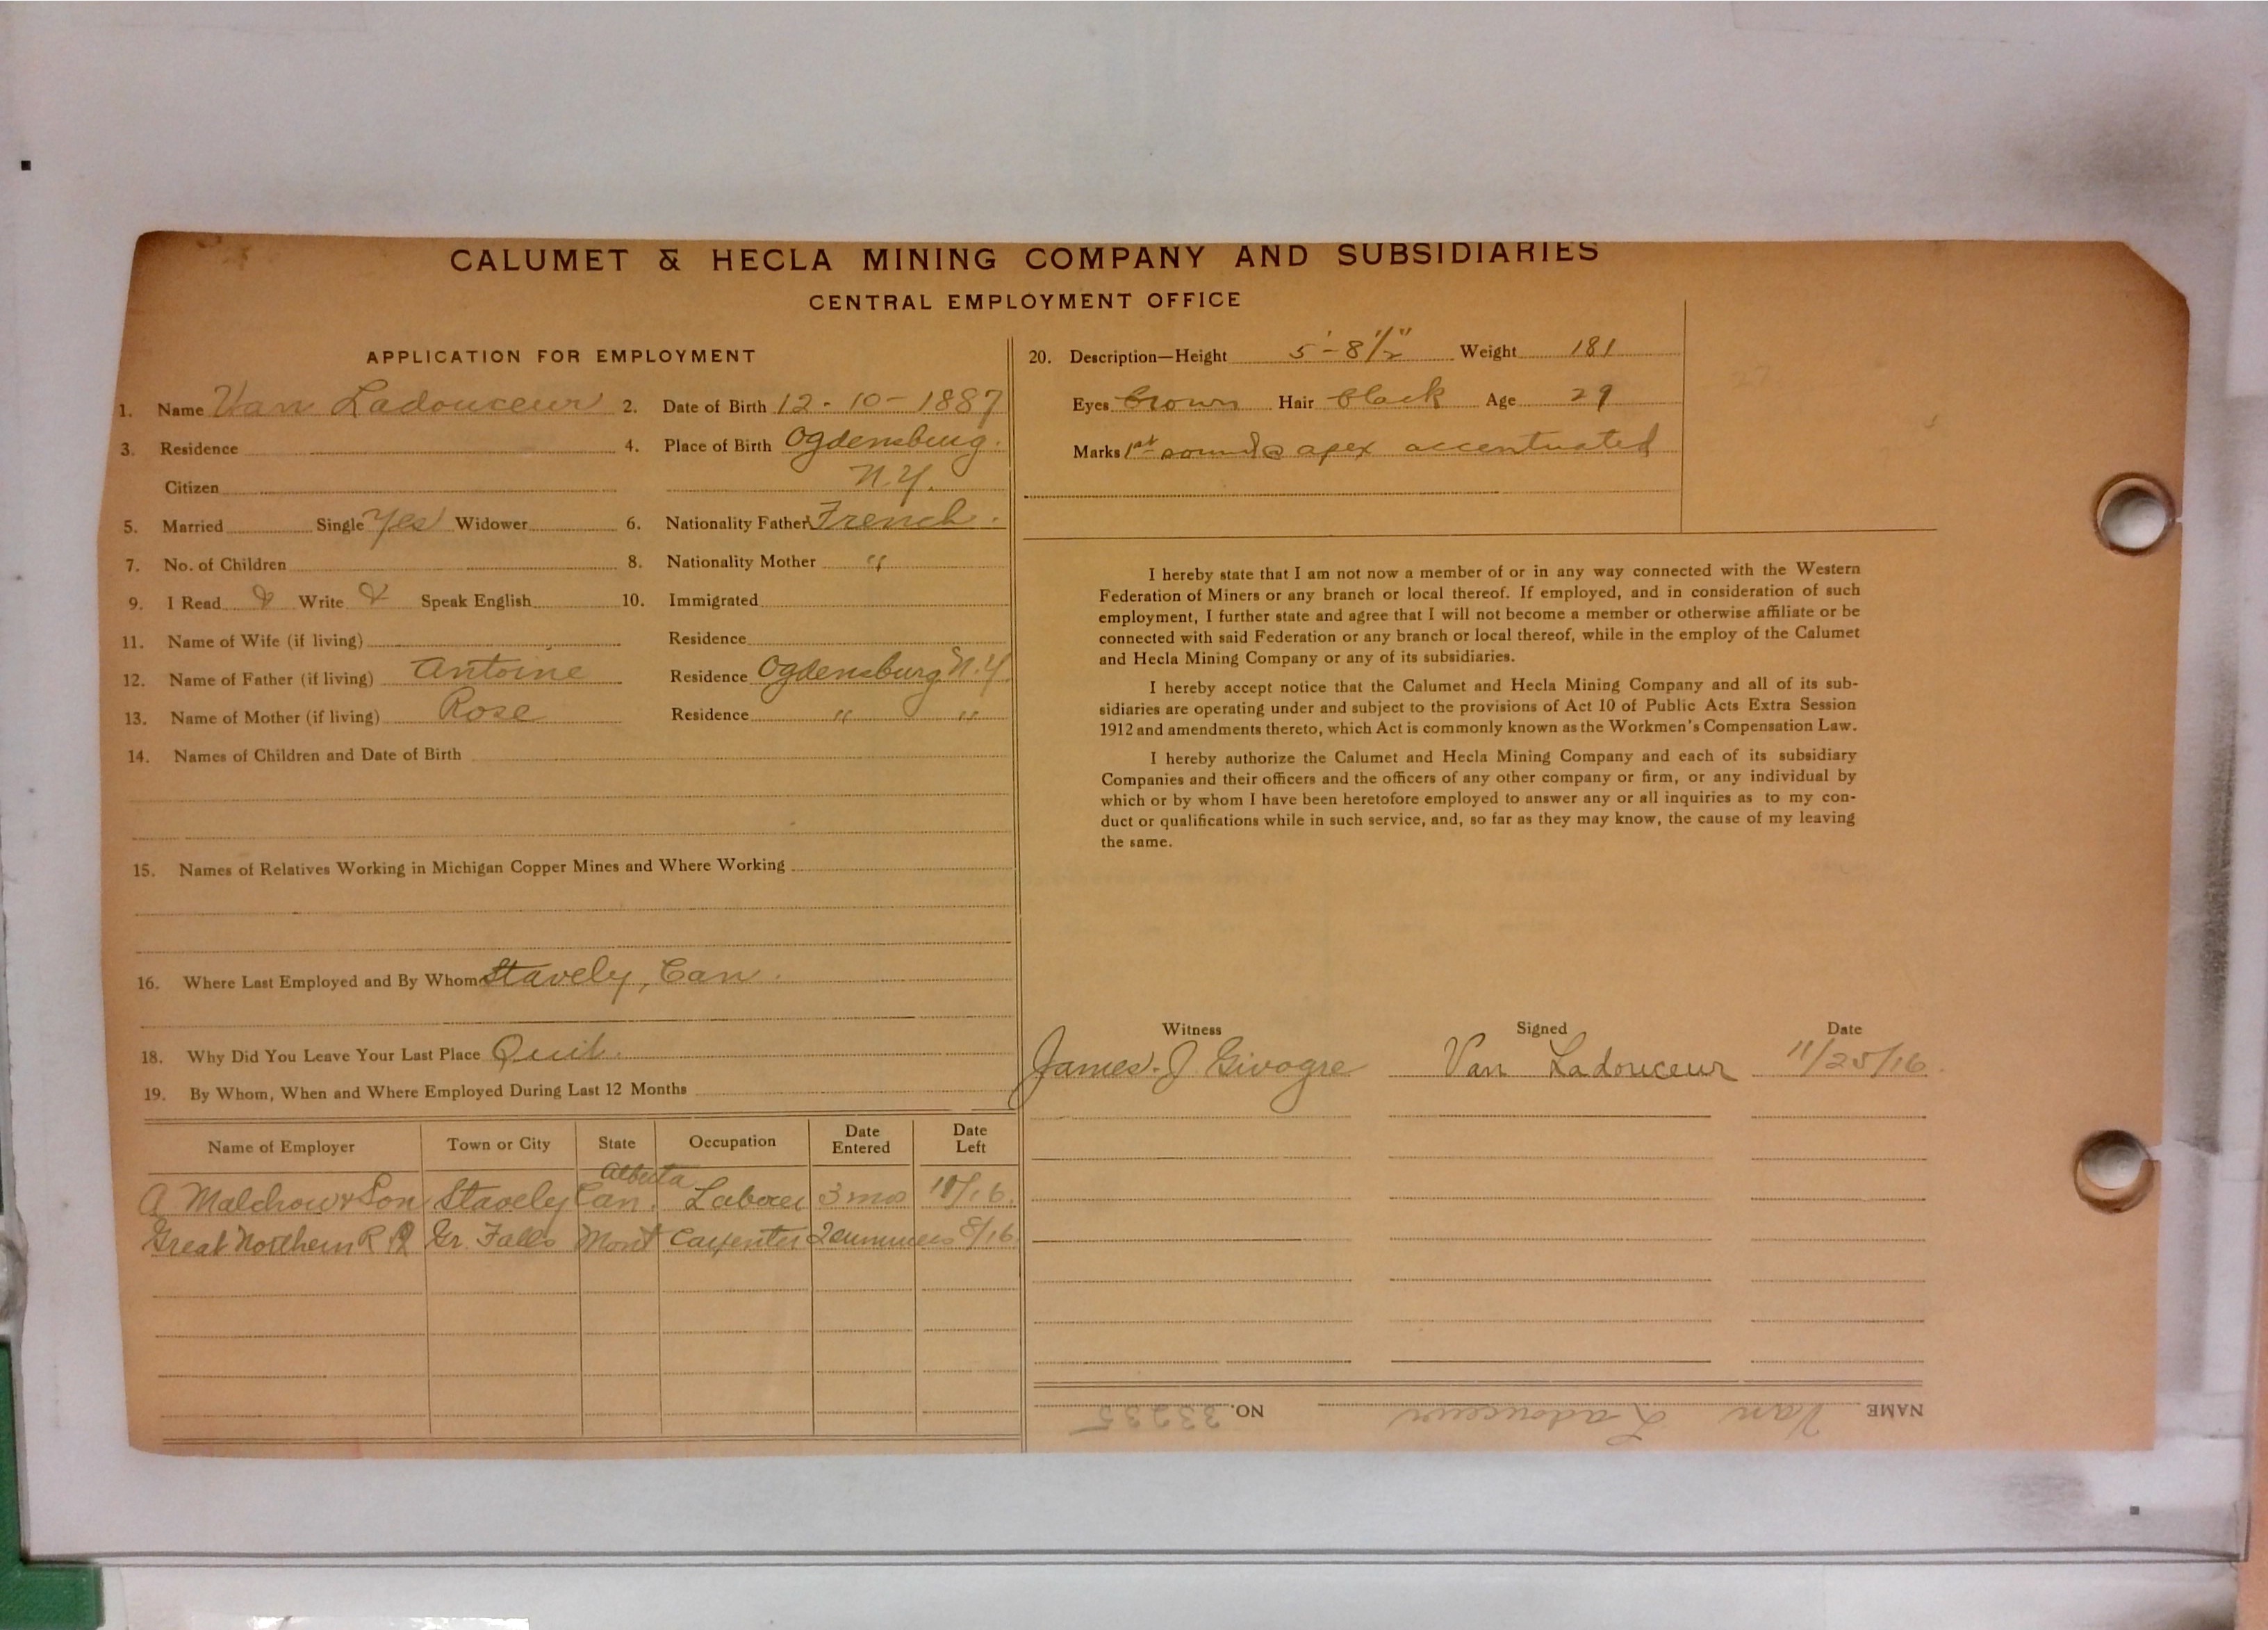 CALUMET & HECLA MINING COMPANY AND SUBSIDIARIES
CENTRAL EMPLOYMENT OFFICE
APPLICATION FOR EMPLOYMENT
1. Name Van Ladouceur 2. Date of Birth 12-10-1887
3. Residence 4. Place of Birth Ogdensburg.
Citizen N.Y.
5. Married Single Yes Widower 6. Nationality Father French.
7. No. of Children 8. Nationality Mother "
9. I Read Write Speak English 10. Immigrated
11. Name of Wife (if living) Residence
12. Name of Father (if living) Antoine Residence Ogdensburg N.Y.
13. Name of Mother (if living) Rose Residence " "
14. Names of Children and Date of Birth
15. Names of Relatives Working in Michigan Copper Mines and Where Working
16. Where Last Employed and By Whom Stavely, Can.
18. Why Did You Leave Your Last Place Quit.
19. By Whom, When and Where Employed During Last 12 Months
Name of Employer Town or City State Occupation Date Entered Date Left
Alberta
A Malchow & Son Stavely Can. Laborer 3 mos 11/16.
Great Northern R R Gr. Falls Mont Carpenter 2 summers 8/16
20. Description—Height 5'-8 1/2" Weight 181
Eyes Brown Hair Black Age 29
Marks 1st sound @ apex accentuated
I hereby state that I am not now a member of or in any way connected with the Western
Federation of Miners or any branch or local thereof. If employed, and in consideration of such
employment, I further state and agree that I will not become a member or otherwise affiliate or be
connected with said Federation or any branch or local thereof, while in the employ of the Calumet
and Hecla Mining Company or any of its subsidiaries.
I hereby accept notice that the Calumet and Hecla Mining Company and all of its sub-
sidiaries are operating under and subject to the provisions of Act 10 of Public Acts Extra Session
1912 and amendments thereto, which Act is commonly known as the Workmen's Compensation Law.
I hereby authorize the Calumet and Hecla Mining Company and each of its subsidiary
Companies and their officers and the officers of any other company or firm, or any individual by
which or by whom I have been heretofore employed to answer any or all inquiries as to my con-
duct or qualifications while in such service, and, so far as they may know, the cause of my leaving
the same.
Witness Signed Date
James. J Givogre Van Ladouceur 11/25/16.
NAME Van Ladouceur NO. 33235